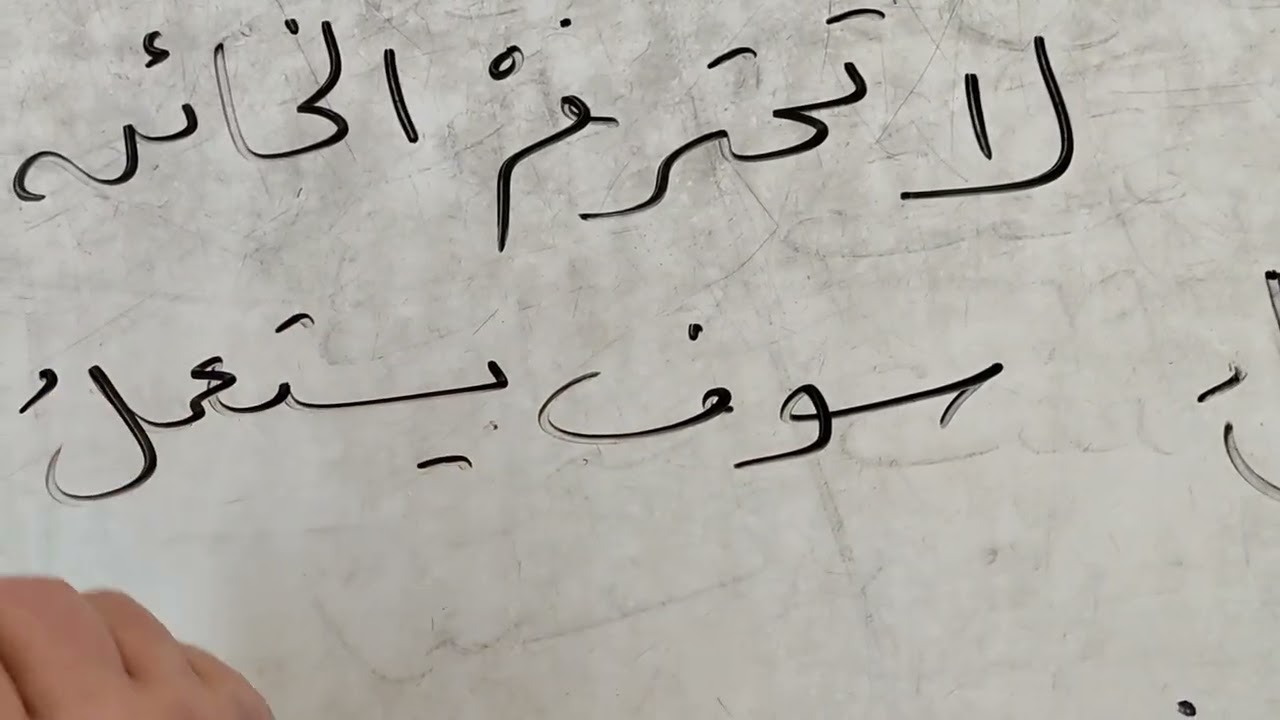 لا تحترمْ الخائن
سوف يستعملُ